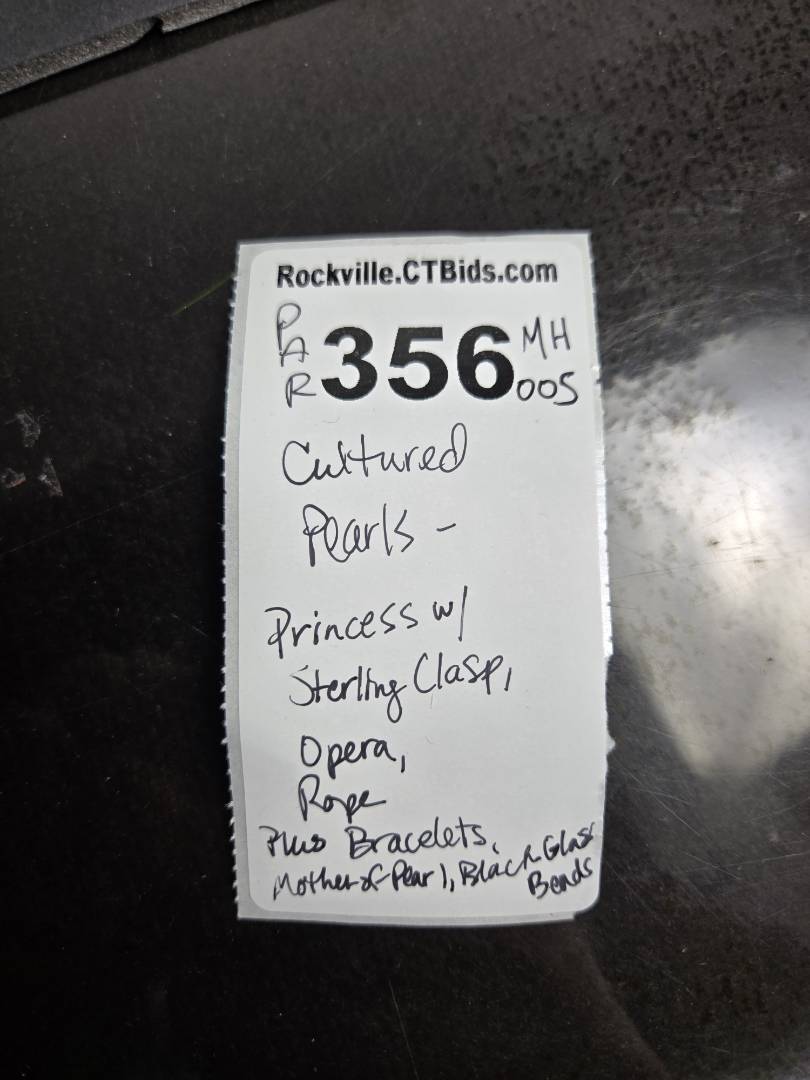 Rockville.CTBids.com
PAR 356 MH 005
Cultured
Pearls -
Princess w/
Sterling Clasp,
Opera,
Rope
Plus Bracelets,
Mother of Pearl, Black Glass
Beads